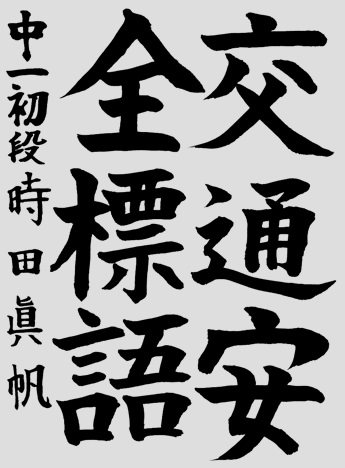 交通安
全標語
中一初段時田眞帆